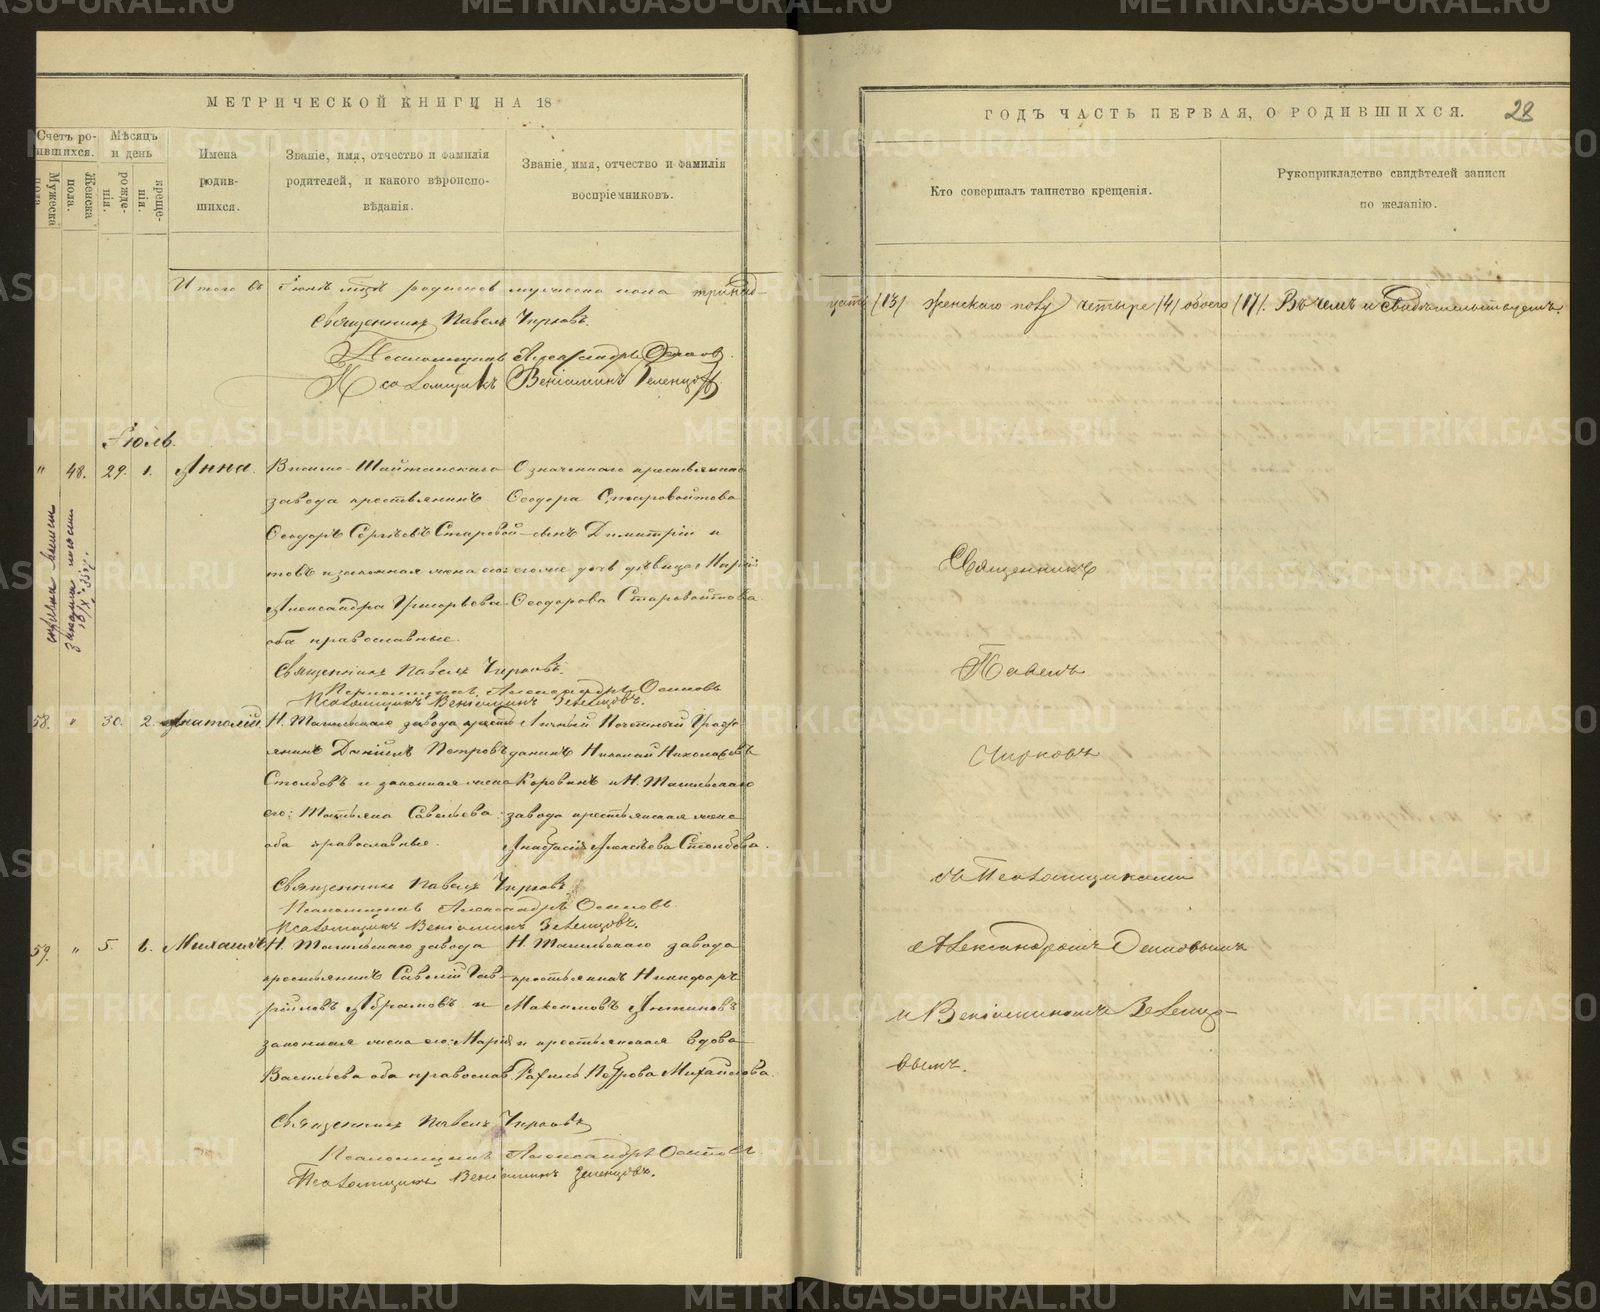 МЕТРИЧЕСКОЙ КНИГИ НА 18
Счетъ ро-
ившихся.
Мужеска
пола.
Женска
пола.
Мѣсяцъ
и день
рожде-
нія.
креще-
нія.
Имена
родив-
шихся.
Званіе, имя, отчество и фамилія
родителей, и какого вѣроиспо-
вѣданія.
Званіе, имя, отчество и фамилія
воспріемниковъ.
Итого въ Іюнѣ мцѣ родилось мужеска пола тринад-
Священникъ Павелъ Чирковъ.
Псаломщикъ Александръ Осиповъ.
Псаломщикъ Веніаминъ Зеленцовъ.
Іюль.
" 48. 29. 1. Анна.
Висимо-Шайтанскаго
завода крестьянинъ
Ѳеодоръ Сергѣевъ Старовой-
товъ и законная жена его
Александра Григорьева
оба православные.
Означеннаго крестьянина
Ѳеодора Старовойтова
сынъ Димитрій и
его же дочь дѣвица Марія
Ѳеодорова Старовойтова.
Священникъ Павелъ Чирковъ.
Псаломщикъ Александръ Осиповъ
Псаломщикъ Веніаминъ Зеленцовъ.
58. " 30. 2. Анатолій.
Н. Тагильскаго завода кресть
янинъ Даніилъ Петровъ
Столбовъ и законная жена
его: Татьяна Савельева
оба православные.
Личный Почетный Граж
данинъ Николай Николаевъ
Коровинъ и Н. Тагильскаго
завода крестьянская жена
Анастасія Алексѣева Столбова.
Священникъ Павелъ Чирковъ
Псаломщикъ Александръ Осиповъ.
Псаломщикъ Веніаминъ Зеленцовъ.
59. " 5. 6. Михаилъ
Н. Тагильскаго завода
крестьянинъ Савелій Гав-
ріиловъ Абрамовъ и
законная жена его: Марія
Васильева оба православ.
Н. Тагильскаго завода
крестьянинъ Никифоръ
Максимовъ Антиповъ
и крестьянская вдова
Рахиль Петрова Михайлова.
Священникъ Павелъ Чирковъ
Псаломщикъ Александръ Осиповъ.
Псаломщикъ Веніаминъ Зеленцовъ.
ГОДЪ ЧАСТЬ ПЕРВАЯ, О РОДИВШИХСЯ.
28
Кто совершалъ таинство крещенія.
Рукоприкладство свидѣтелей записи
по желанію.
цать /13/ женскаго полу четыре /4/ обоего /17/. Въ чемъ и свидѣтельствуемъ.
Священникъ
Павелъ
Чирковъ
съ Псаломщиками
Александромъ Осиповымъ
и Веніаминомъ Зеленцо-
вымъ.
METRIKI.GASO-URAL.RU